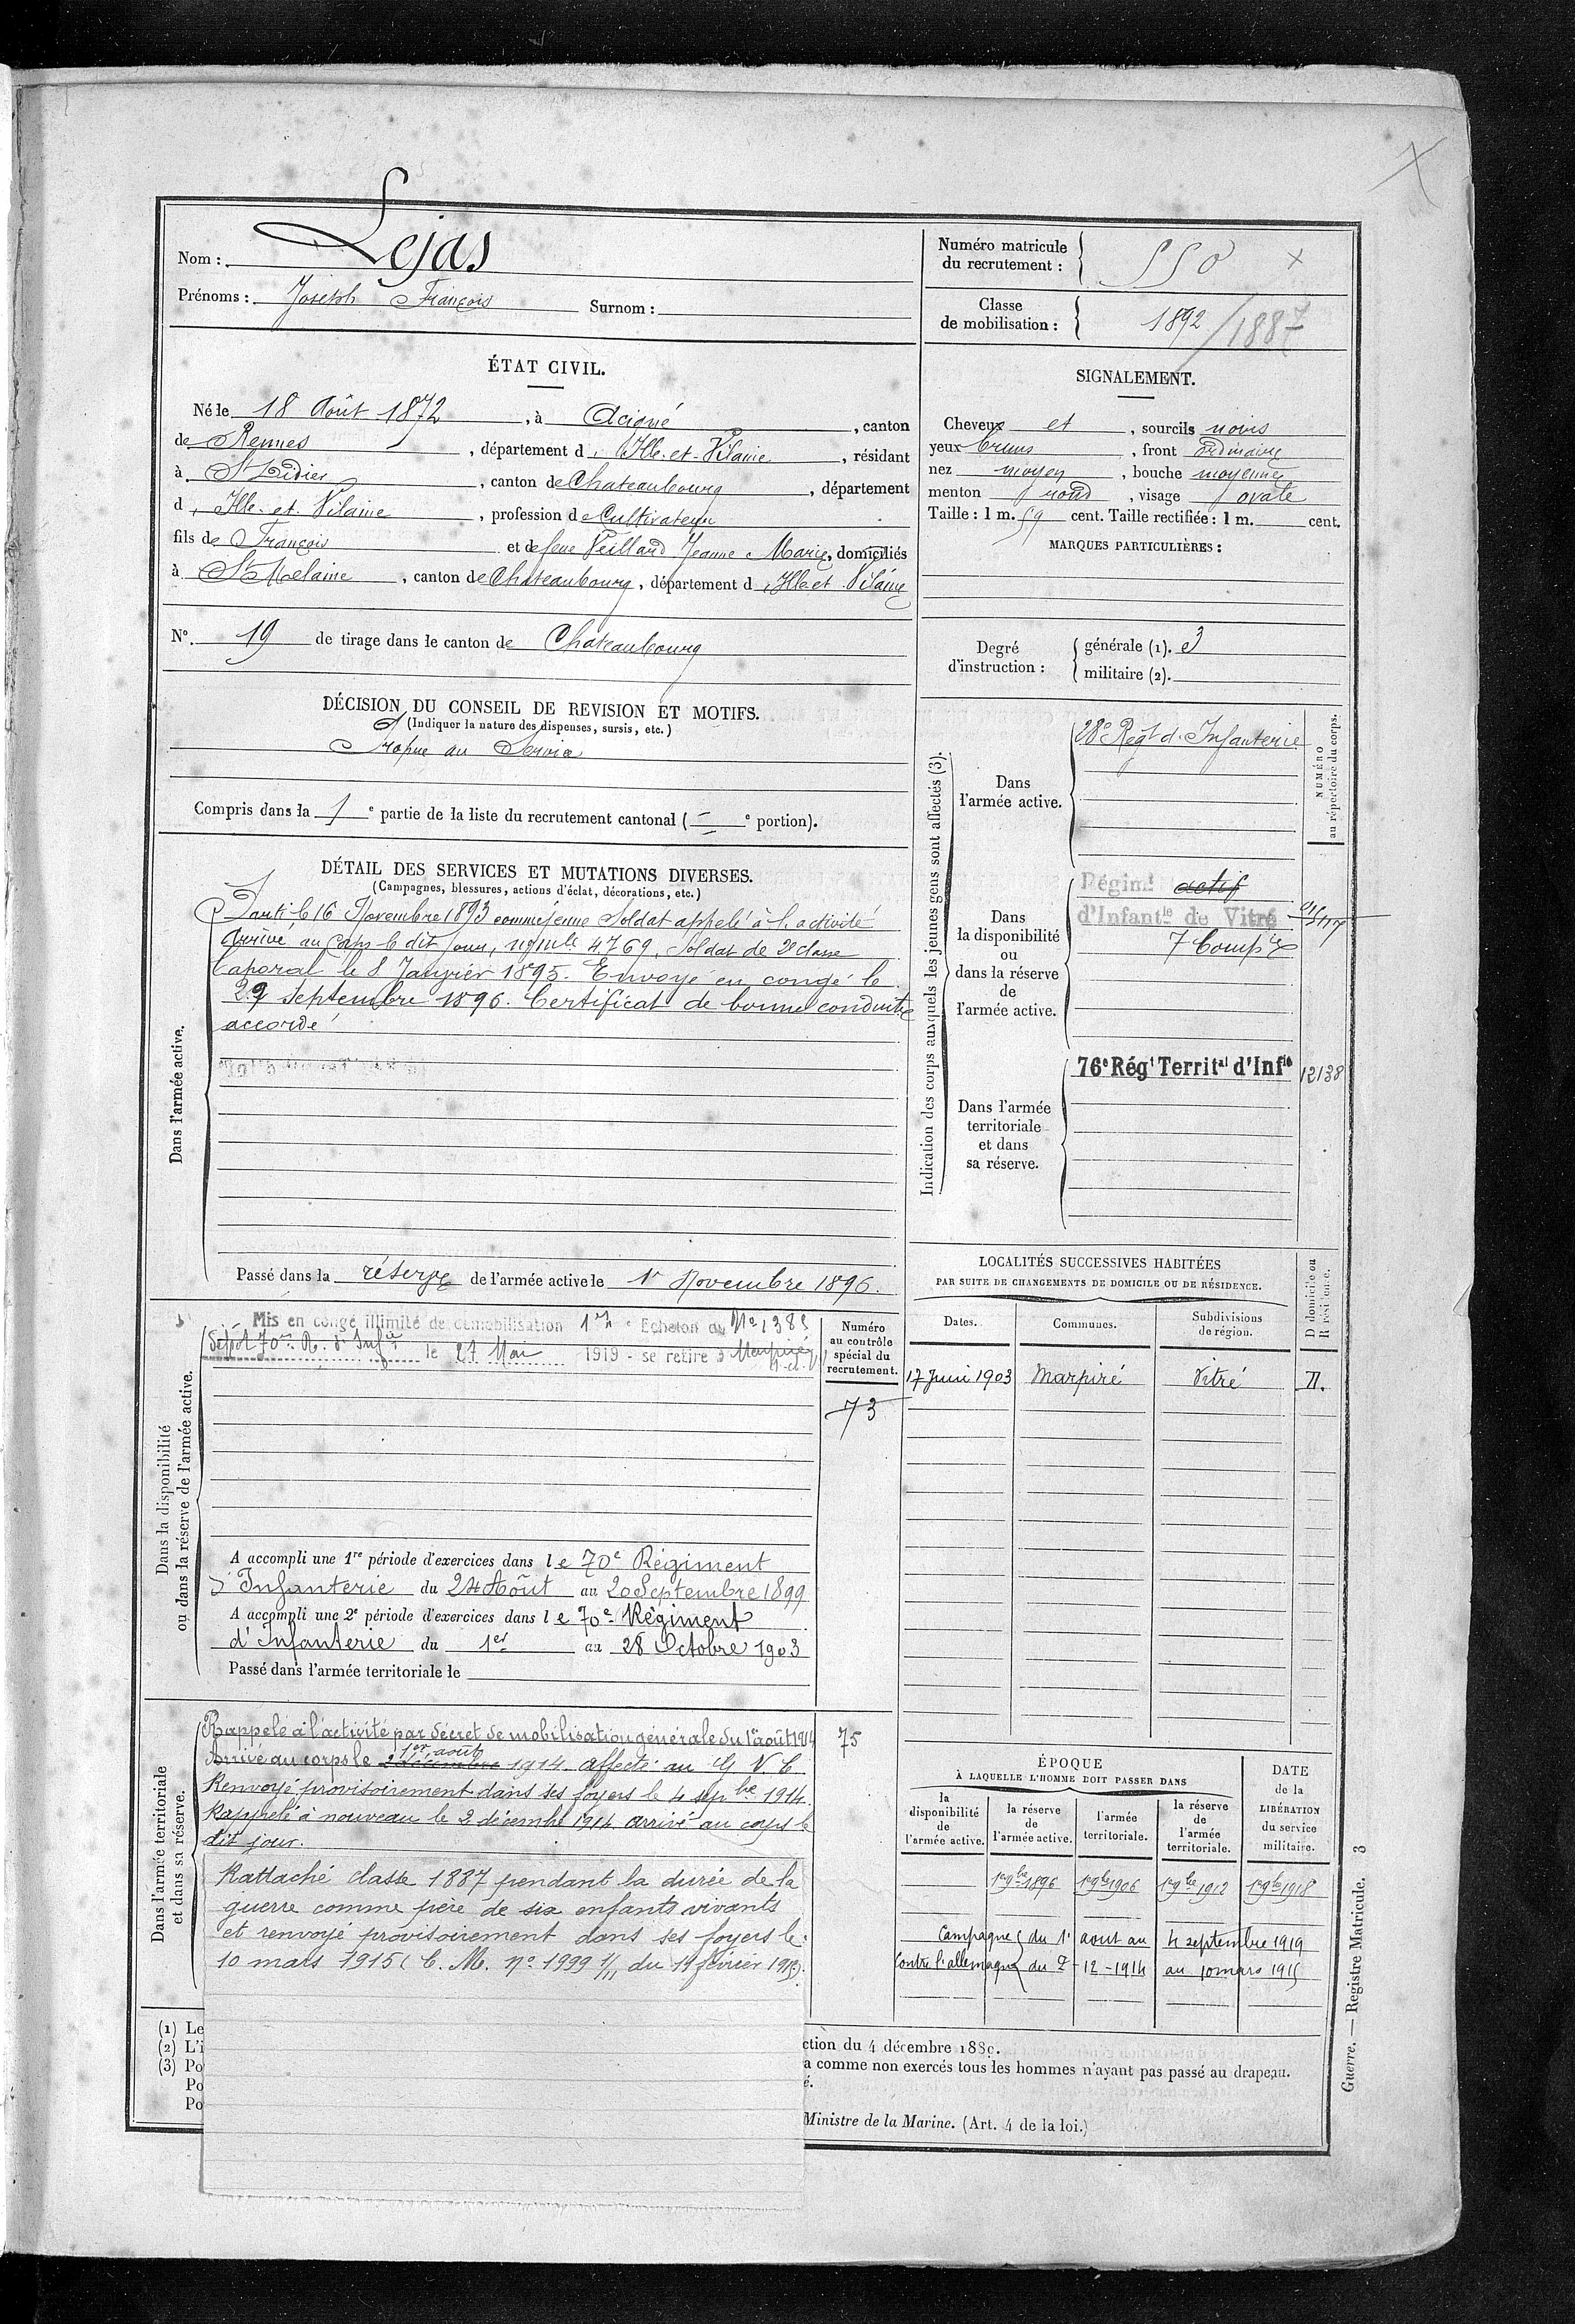 Nom : Lejas
Prénoms : Joseph François Surnom :
Numéro matricule du recrutement : 550
Classe de mobilisation : 1892 / 1887
ÉTAT CIVIL.
Né le 18 Août 1872, à Acigné, canton
de Rennes, département d'Ille-et-Vilaine, résidant
à St Didier, canton de Chateaubourg, département
d'Ille-et-Vilaine, profession de Cultivateur
fils de François et de feue Veillard Jeanne Marie, domiciliés
à St Melaine, canton de Chateaubourg, département d'Ille et Vilaine
N° 19 de tirage dans le canton de Chateaubourg
SIGNALEMENT.
Cheveux et, sourcils noirs
yeux bruns, front ordinaire
nez moyen, bouche moyenne
menton rond, visage ovale
Taille : 1 m. 59 cent. Taille rectifiée : 1 m. cent.
MARQUES PARTICULIÈRES :
Degré d'instruction : générale (1). 3
militaire (2).
DÉCISION DU CONSEIL DE REVISION ET MOTIFS.
(Indiquer la nature des dispenses, sursis, etc.)
Propre au Service
Compris dans la 1e partie de la liste du recrutement cantonal ( e portion).
DÉTAIL DES SERVICES ET MUTATIONS DIVERSES.
(Campagnes, blessures, actions d'éclat, décorations, etc.)
Dans l'armée active.
Parti le 16 Novembre 1893 comme jeune Soldat appelé à l'activité
Arrivé au Corps le dit jour, no mle 4769, Soldat de 2e classe
Caporal le 8 Janvier 1895. Envoyé en congé le
29 Septembre 1896. Certificat de bonne conduite
accordé
Passé dans la réserve de l'armée active le 1r Novembre 1896.
Indication des corps auxquels les jeunes gens sont affectés (3).
NUMÉRO au répertoire du corps.
Dans l'armée active.
28e Regt d'Infanterie
Dans la disponibilité ou dans la réserve de l'armée active.
Régimt actif
d'Infantie de Vitré
7 Compie
Dans l'armée territoriale et dans sa réserve.
76e Régt Territal d'Infie 12138
Dans la disponibilité ou dans la réserve de l'armée active.
Mis en congé illimité de démobilisation 1er Echelon du No 1383
Dépôt 70me R. d'Infie le 27 Mars 1919 - se retire à Marpiré
Numéro au contrôle spécial du recrutement.
73
A accompli une 1re période d'exercices dans le 70e Régiment
d'Infanterie du 24 Août au 20 Septembre 1899
A accompli une 2e période d'exercices dans le 70e Régiment
d'Infanterie du 1er au 28 Octobre 1903
Passé dans l'armée territoriale le
LOCALITÉS SUCCESSIVES HABITÉES
PAR SUITE DE CHANGEMENTS DE DOMICILE OU DE RÉSIDENCE.
Dates. Communes. Subdivisions de région. D domicile ou R résidence.
17 Juin 1903 Marpiré Vitré D.
Dans l'armée territoriale et dans sa réserve.
Rappelé à l'activité par décret de mobilisation générale du 1er août 1914
1er août
Arrivé au corps le 2 décembre 1914 affecté au G V C
Renvoyé provisoirement dans ses foyers le 4 sepbre 1914.
Rappelé à nouveau le 2 décembre 1914 arrivé au corps le
dit jour.
75
Rattaché classe 1887 pendant la durée de la
guerre comme père de six enfants vivants
et renvoyé provisoirement dans ses foyers le
10 mars 1915 (C. M. no 1999 1/11 du 19 février 1915).
ÉPOQUE
À LAQUELLE L'HOMME DOIT PASSER DANS
DATE de la LIBÉRATION du service militaire.
la disponibilité de l'armée active.
la réserve de l'armée active.
l'armée territoriale.
la réserve de l'armée territoriale.
1er 9bre 1896 1er 9bre 1906 1er 9bre 1912 1er 9bre 1918
Campagne du 1r aout au 4 septembre 1919
contre l'allemagne du 2-12-1914 au 10 mars 1915
(1) Le
(2) L'i
(3) Po
Po
Po
ction du 4 décembre 1889.
a comme non exercés tous les hommes n'ayant pas passé au drapeau.
é.
Ministre de la Marine. (Art. 4 de la loi.)
Guerre. — Registre Matricule. 3